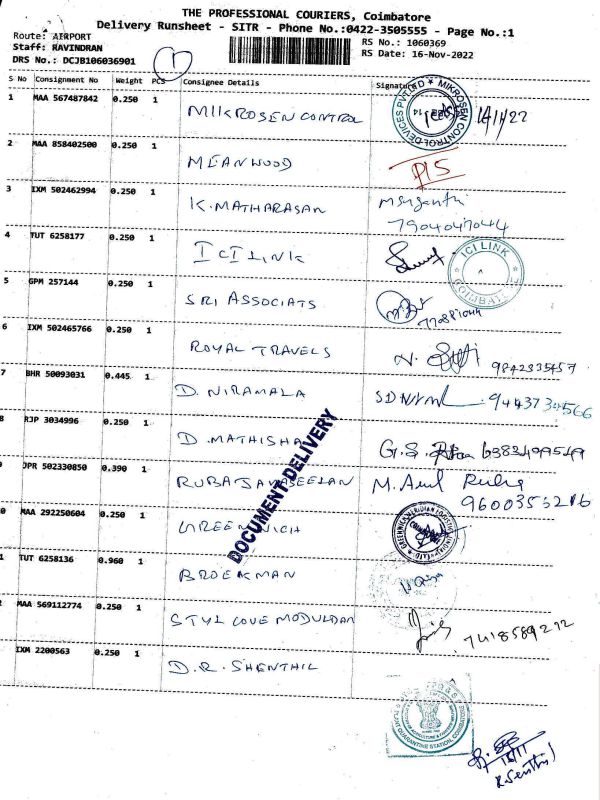 THE PROFESSIONAL COURIERS, Coimbatore
Delivery Runsheet - SITR - Phone No.:0422-3505555 - Page No.:1
Route: AIRPORT
Staff: RAVINDRAN
DRS No.: DCJB106036901
1
RS No.: 1060369
RS Date: 16-Nov-2022
S No Consignment No Weight PCS Consignee Details Signature
1 MAA 567487842 0.250 1 MIKROSEN CONTROL
MIKROSEN CONTROL DEVICES PVT LTD
2 MAA 858402500 0.250 1 MEANWOOD
3 IXM 502462994 0.250 1 K. MATHARASAN
7904047044
4 TUT 6258177 0.250 1 ICI LINK
ICI LINK
5 GPM 257144 0.250 1 SRI ASSOCIATS
6 IXM 502465766 0.250 1 ROYAL TRAVELS 9842335457
7 BHR 50093031 0.445 1 D. NIRAMALA 9443734566
8 RJP 3034996 0.250 1 D. MATHISHA G.S. 6383499549
9 JPR 502330850 0.390 1 RUBATJAYASEELAN M. Anil
9600353216
DOCUMENT DELIVERY
0 MAA 292250604 0.250 1 GREENWICH
1 TUT 6258136 0.960 1 BROEKMAN
2 MAA 569112774 0.250 1 STYL COVE MODULDAR 7418589272
IXM 2200563 0.250 1 D.R. SHENTHIL
PLANT QUARANTINE STATION, COIMBATORE
16/11